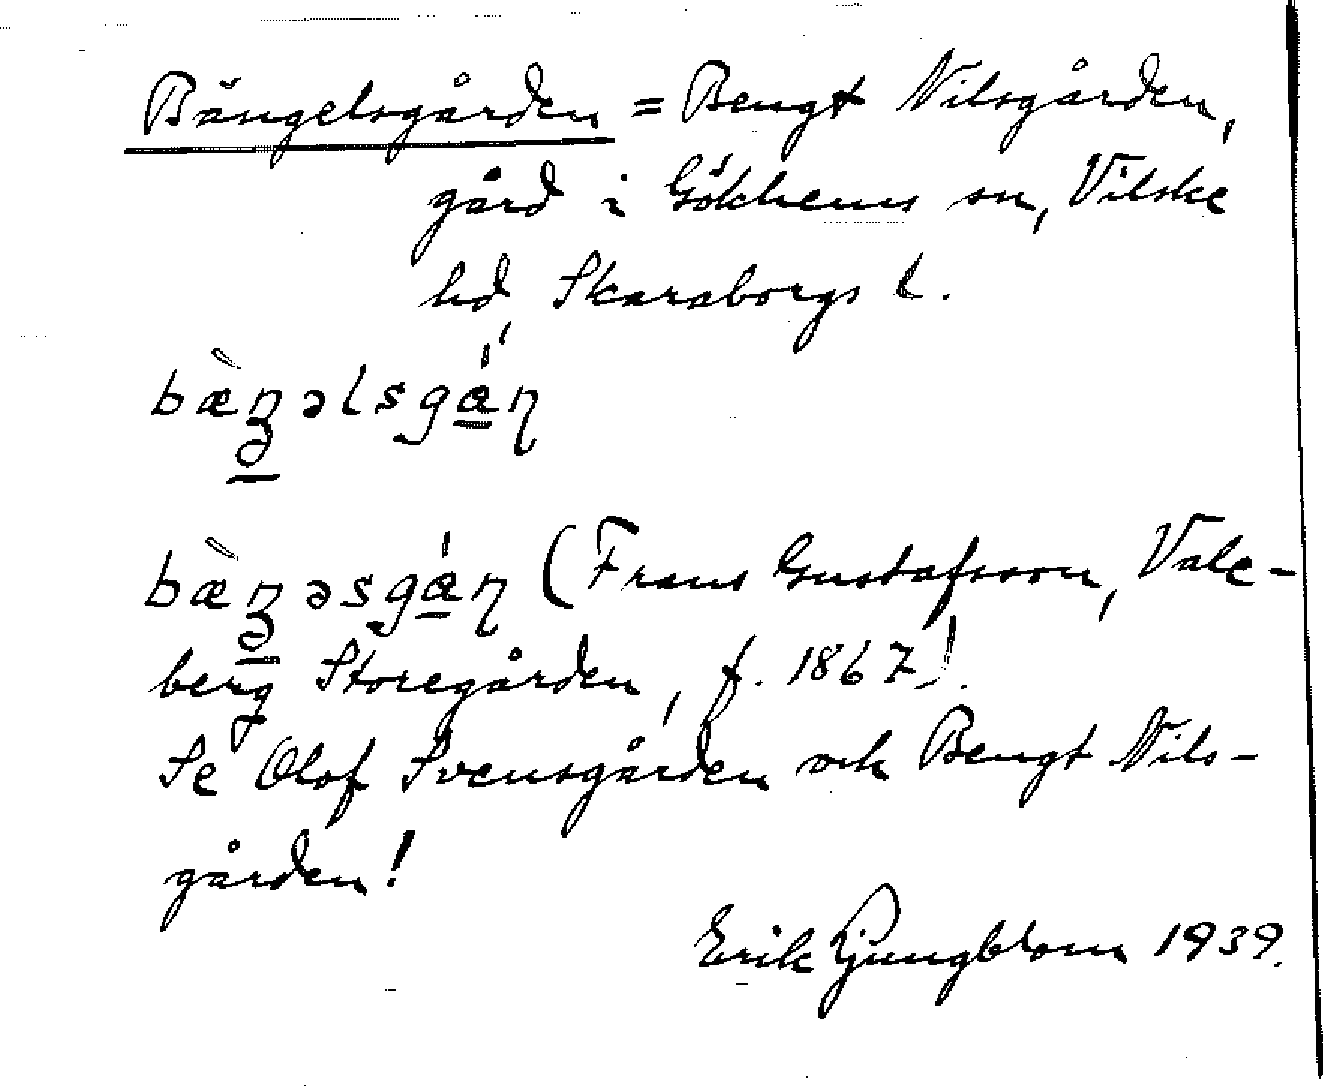 Bängelsgården = Bengt Nilsgården,
gård i Gökhems sn, Vilske
hd, Skaraborgs l.
bæ̀ŋəlsgán
bæ̀ŋəsgán (Frans Gustafsson, Vale-
berg Storegården, f. 1867)!
Se Olof Svensgården och Bengt Nils-
gården!
Erik Ljungblom 1939.